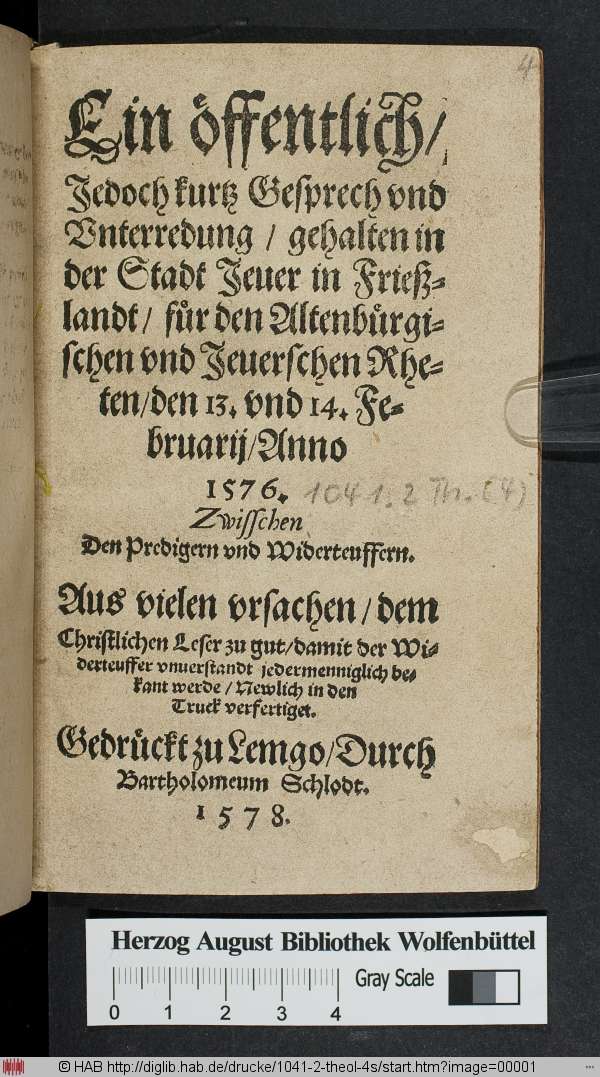 4
Ein öffentlich/
Jedoch kurtz Gesprech vnd
Vnterredung / gehalten in
der Stadt Jeuer in Frieß-
landt/ fuͤr den Altenbuͤrgi-
schen vnd Jeuerschen Rhe-
ten/den 13. vnd 14. Fe-
bruarij/Anno
1576.
1041.2 Th. (4)
Zwisschen
Den Predigern vnd Widerteuffern.
Aus vielen vrsachen/dem
Christlichen Leser zu gut/damit der Wi-
derteuffer vnuerstandt jedermenniglich be-
kant werde / Newlich in den
Truck verfertiget.
Gedruͤckt zu Lemgo/Durch
Bartholomeum Schlodt.
1578.
Herzog August Bibliothek Wolfenbüttel
Gray Scale
0 1 2 3 4
© HAB http://diglib.hab.de/drucke/1041-2-theol-4s/start.htm?image=00001